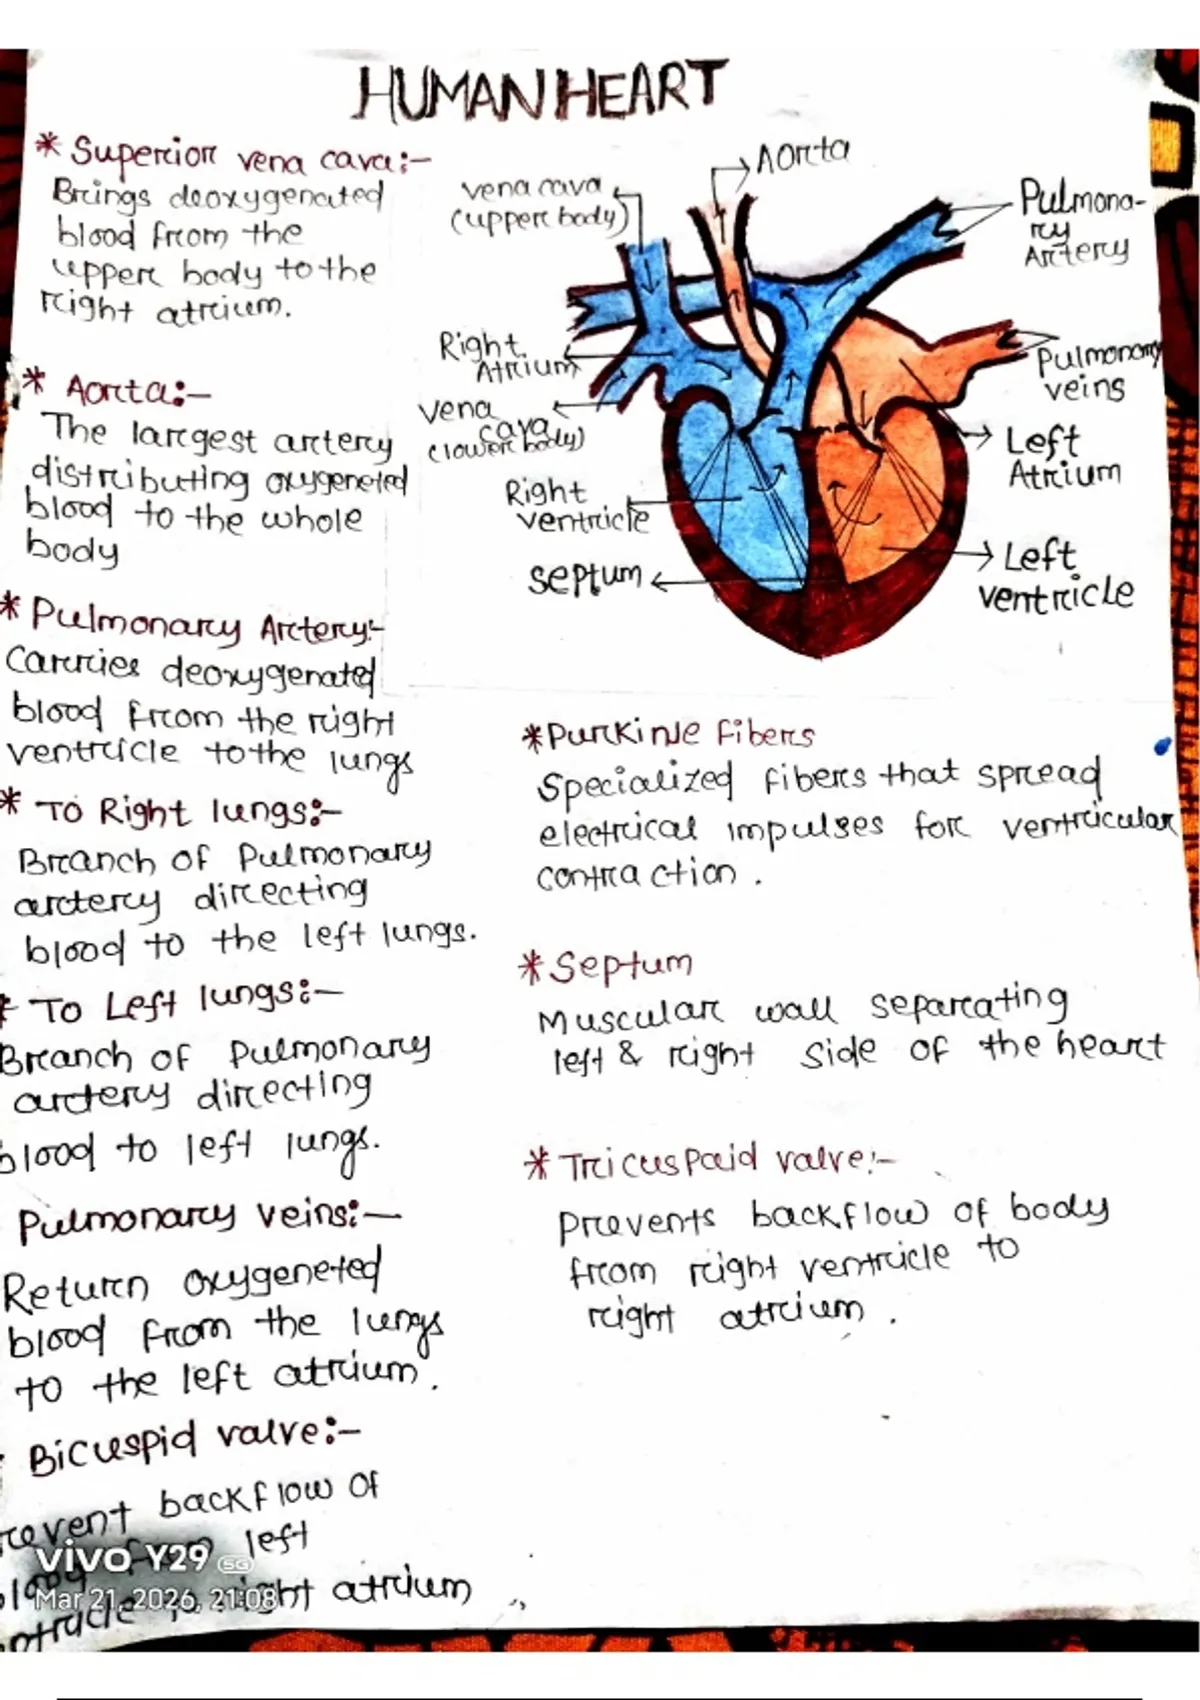 HUMAN HEART
* Superior vena cava:-
Brings deoxygenated
blood from the
upper body to the
right atrium.
* Aorta:-
The largest artery
distributing oxygeneted
blood to the whole
body
* Pulmonary Artery:-
Carries deoxygenated
blood from the right
ventricle to the lungs
* To Right lungs:-
Branch of Pulmonary
artery directing
blood to the left lungs.
* To Left lungs:-
Branch of Pulmonary
artery directing
blood to left lungs.
Pulmonary veins:-
Return oxygeneted
blood from the lungs
to the left atrium.
Bicuspid valve:-
revent backflow of
from left
to right atrium
vivo Y29 5G
Mar 21, 2026, 21:08
Aorta
vena cava
(upper body)
Pulmona-
ry
Artery
Right
Atrium
Pulmonary
veins
vena
cava
(lower body)
Left
Atrium
Right
ventricle
septum
Left
ventricle
*Purkinje Fibers
Specialized fibers that spread
electrical impulses for ventricular
contraction.
*Septum
Muscular wall separating
left & right side of the heart
* Tricuspaid valve:-
prevents backflow of body
from right ventricle to
right atrium.